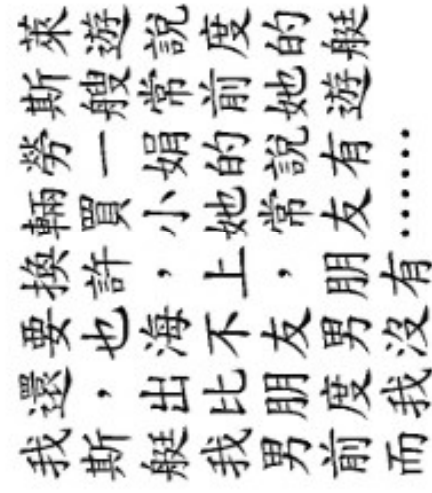 我還要換輛勞斯萊
斯，也許買一艘遊
艇出海，小娟常說
我比不上她的前度
男朋友，常說她的
前度男朋友有遊艇
而我沒有……